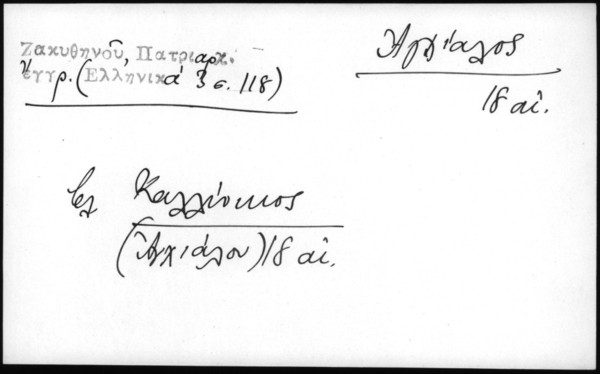 Ζακυθηνοῦ, Πατριαρχ.
ἔγγρ. (Ἑλληνικά 3 σ. 118)
Ἀγχίαλος
18 αἰ.
βλ Καλλίνικος
(Ἀγχιάλου) 18 αἰ.